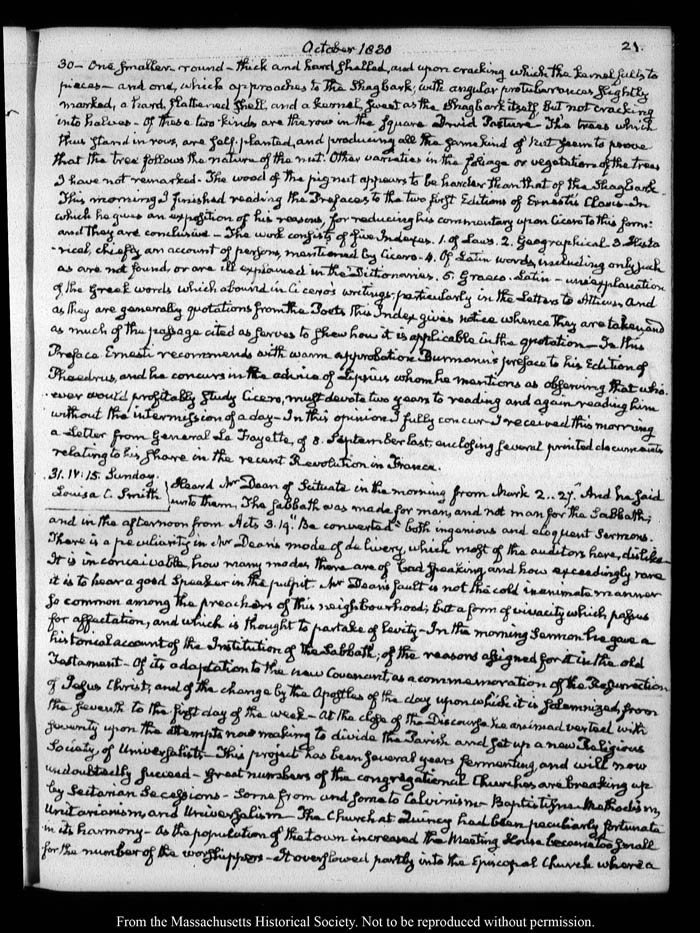 October 1830 21.
30 — One smaller — round — thick and hard shelled, and upon cracking which the kernel falls to
pieces — and one, which approaches to the Shagbark; with angular protuberances slightly
marked, a hard, flattened shell, and a kernel, sweet as the Shagbark itself, but not cracking
into halves — Of these two kinds are the row in the Square Druid Pasture. The trees which
thus stand in rows, are self-planted, and producing all the same kind of nut seem to prove
that the tree follows the nature of the nut. Other varieties in the foliage or vegetation of the trees
I have not remarked. The wood of the pignut appears to be harder than that of the Shagbark —
This morning I finished reading the Prefaces to the two first Editions of Ernesti's Clavis — In
which he gives an exposition of his reasons, for reducing his commentary upon Cicero to this form:
and they are conclusive — The work consists of five Indexes. 1. of Laws. 2. Geographical. 3. Histo
-rical, chiefly an account of persons, mentioned by Cicero. 4. Of Latin words, including only such
as are not found, or are ill explained in the Dictionaries. 5. Graeco-Latin — an explanation
of the Greek words which abound in Cicero's writings; particularly in the Letters to Atticus. And
as they are generally quotations from the Poets this Index gives notice whence they are taken, and
as much of the passage cited as serves to shew how it is applicable in the quotation — In this
Preface Ernesti recommends with warm approbation Burmann's preface to his Edition of
Phaedrus, and he concurs in the advice of Lipsius whom he mentions as observing that who-
ever would profitably study Cicero, must devote two years to reading and again reading him
without the intermission of a day — In this opinion I fully concur — I received this morning
a Letter from General La Fayette, of 8. September last, enclosing several printed documents
relating to his share in the recent Revolution in France.
31. IV:15. Sunday. Heard Mr Dean of Scituate in the morning from Mark 2. 27. "And he said
Louisa C. Smith unto them, The Sabbath was made for man, and not man for the Sabbath;
and in the afternoon from Acts 3.19. "Be converted" both ingenious and eloquent Sermons.
There is a peculiarity in Mr Dean's mode of delivery, which most of the auditors here, dislike —
It is inconceivable, how many modes there are of bad speaking, and how exceedingly rare
it is to hear a good Speaker in the pulpit. Mr Dean's fault is not the cold inanimate manner
so common among the preachers of this neighbourhood; but a form of vivacity which passes
for affectation, and which is thought to partake of levity — In the morning Sermon he gave a
historical account of the Institution of the Sabbath; of the reasons assigned for it in the old
Testament — Of its adaptation to the new Covenant, as a commemoration of the Resurrection
of Jesus Christ, and of the change by the Apostles of the day upon which it is solemnized, from
the seventh to the first day of the week — At the close of the Discourse he animadverted with
severity upon the attempts now making to divide the Parish and set up a new Religious
Society of Universalists — This project has been several years fermenting, and will now
undoubtedly succeed — Great numbers of the congregational Churches are breaking up
by Sectarian Secessions — Some from and some to Calvinism — Baptistism — Methodism,
Unitarianism, and Universalism — The Church at Quincy had been peculiarly fortunate
in its harmony — As the population of the town increased the Meeting House became too small
for the number of the worshippers — It overflowed partly into the Episcopal Church where a
From the Massachusetts Historical Society. Not to be reproduced without permission.